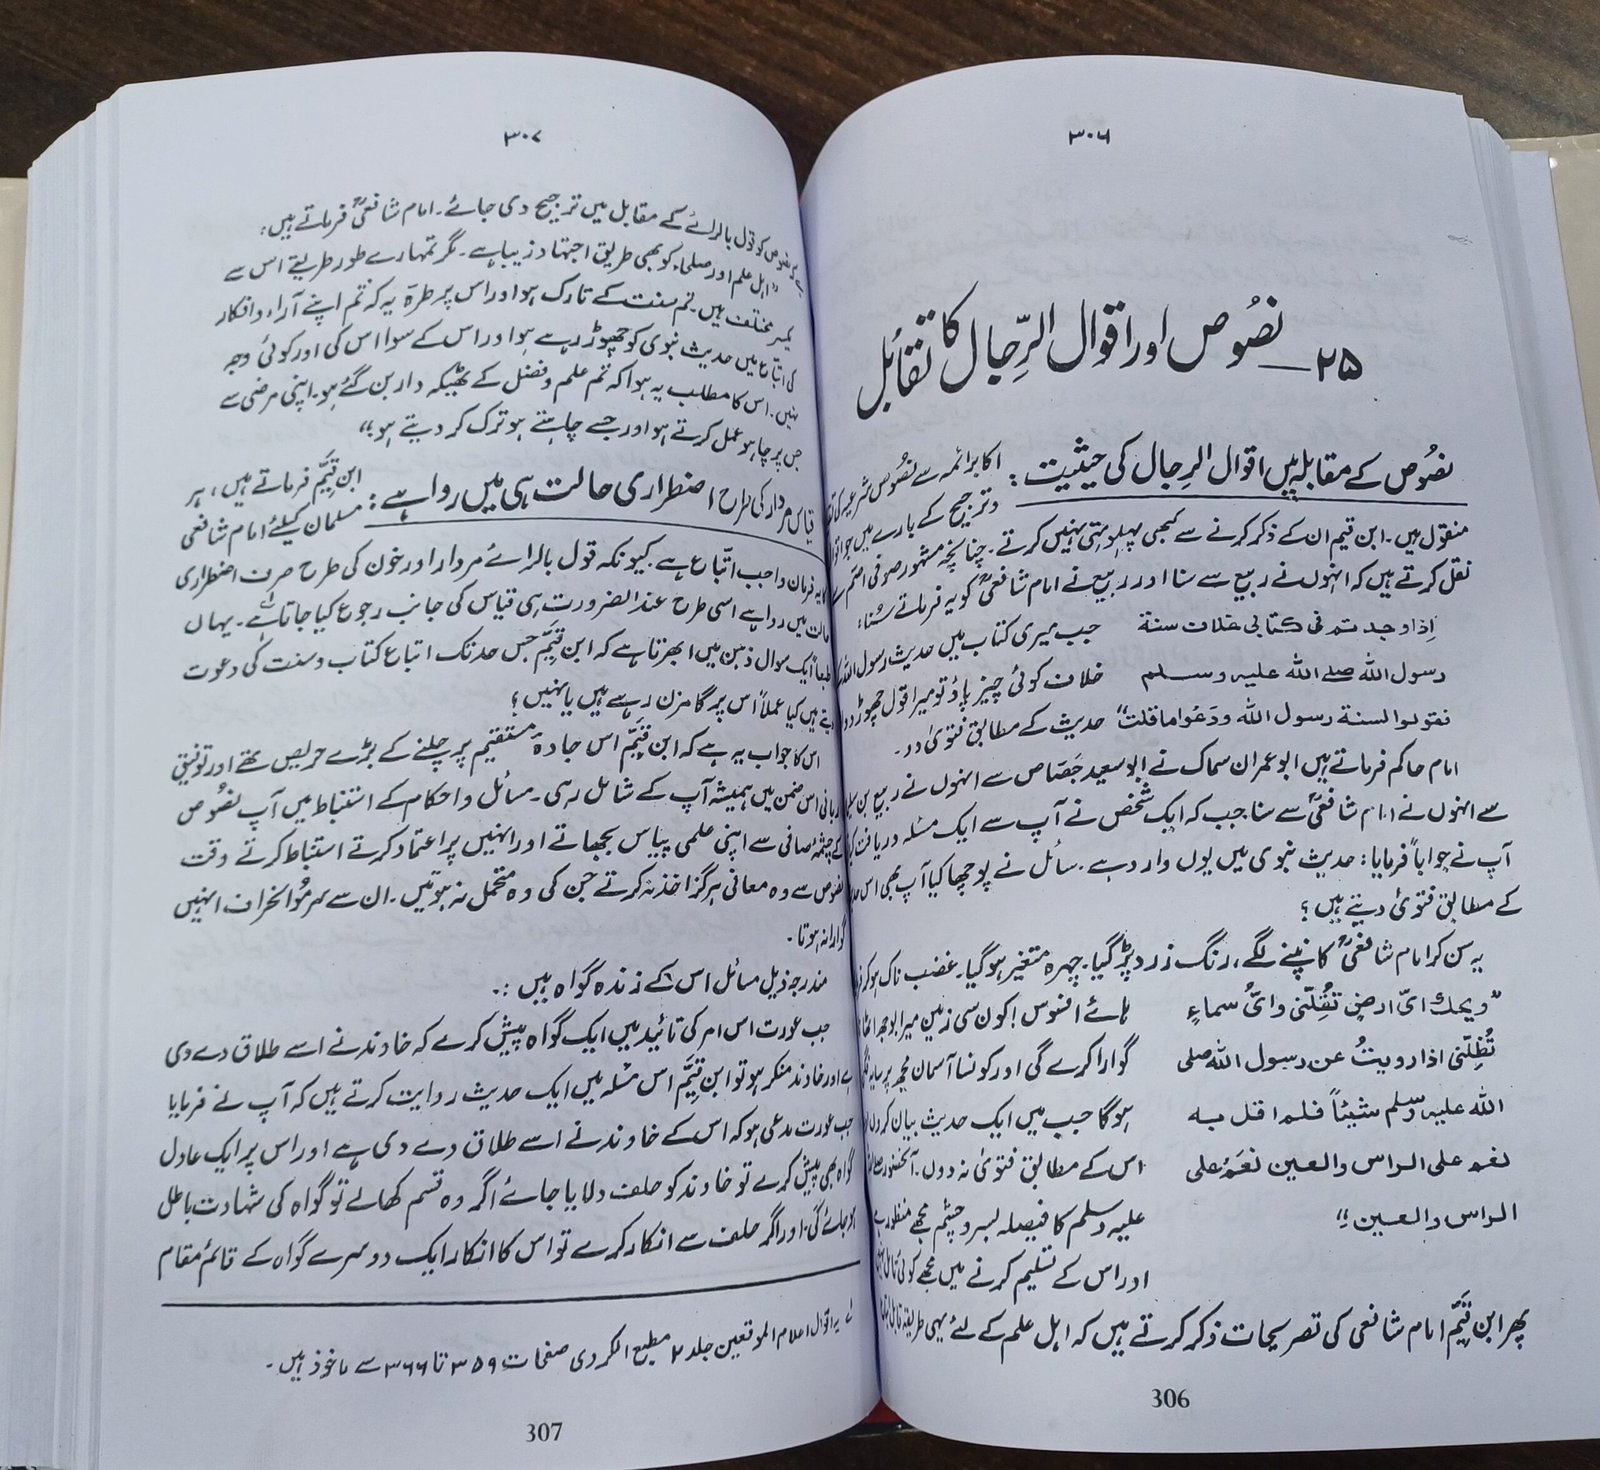 ۳۰۶
۲۵ــ نصُوص اور اقوال الرِّجال کا تقابُل
نصُوص کے مقابلہ میں اقوال الرجال کی حیثیت :
اکابر ائمہ سے نصُوص شرعیہ کی
و ترجیح کے بارے میں جو
منقول ہیں۔ ابن قیم ان کے ذکر کرنے سے کبھی پہلو تہی نہیں کرتے۔ چنانچہ مشہور صوفی اصم سے
نقل کرتے ہیں کہ انہوں نے ربیع سے سنا اور ربیع نے امام شافعیؒ کو یہ فرماتے سُنا،
اِذا وجدتم فی کتابی خلاف سنة
جب میری کتاب میں حدیث رسول اللہ
رسول الله صلے الله عليه وسلم
خلاف کوئی چیز پاؤ تو میرا قول چھوڑ دو
فقولوا لسنة رسول الله ودَعُوا ما قلت“
حدیث کے مطابق فتویٰ دو۔
امام حاکم فرماتے ہیں ابو عمران سماک نے ابو سعید جَصّاص سے انہوں نے ربیع بن
سے انہوں نے امام شافعیؒ سے سنا جب کہ ایک شخص نے آپ سے ایک مسئلہ دریافت
آپ نے جواباً فرمایا : حدیث نبوی میں یوں وارد ہے۔ سائل نے پوچھا کیا آپ بھی اس
کے مطابق فتویٰ دیتے ہیں؟
یہ سن کر امام شافعیؒ کانپنے لگے، رنگ زرد پڑ گیا۔ چہرہ متغیر ہو گیا۔ غضب ناک ہو کر
”ویحك ایّ ارضٍ تقُلّنی وایُّ سماءٍ
ہائے افسوس! کون سی زمین میرا بوجھ اٹھانا
تُظِلّنی اذا رویتُ عن رسول الله صلی
گوارا کرے گی اور کونسا آسمان مجھ پر سایہ
الله علیہ وسلم شیئاً فلم اقل به
ہوگا جب میں ایک حدیث بیان کروں
نعم علی الراس والعین نعَمْ علی
اس کے مطابق فتویٰ نہ دوں۔ آنحضور صلی
الراس والعین“
علیہ وسلم کا فیصلہ بسر و چشم مجھے منظور ہے
اور اس کے تسلیم کرنے میں مجھے کوئی تامل
پھر ابن قیّمؒ امام شافعی کی تصریحات ذکر کرتے ہیں کہ اہل علم کے لئے یہی طریقہ
306
۳۰۷
ہے کہ نصوص کو قول بالرائے کے مقابل میں ترجیح دی جائے۔ امام شافعیؒ فرماتے ہیں :
”اہل علم اور صلحاء کو بھی طریق اجتہاد زیبا ہے۔ مگر تمہارے طور طریقے اس سے
یکسر مختلف ہیں۔ تم سنت کے تارک ہو اور اس پر طرّہ یہ کہ تم اپنے آراء و افکار
کی اتباع میں حدیث نبوی کو چھوڑ رہے ہو اور اس کے سوا اس کی اور کوئی وجہ
نہیں۔ اس کا مطلب یہ ہوا کہ تم علم و فضل کے ٹھیکہ دار بن گئے ہو۔ اپنی مرضی سے
جس پر چاہو عمل کرتے ہو اور جسے چاہتے ہو ترک کر دیتے ہو“
قیاس مردار کی طرح اضطراری حالت ہی میں روا ہے :
ابن قیّم فرماتے ہیں، ہر
مسلمان کیلئے امام شافعی
کا یہ فرمان واجب اتّباع ہے کیونکہ قول بالرائے مردار اور خون کی طرح صرف اضطراری
حالت میں روا ہے اسی طرح عند الضرورت ہی قیاس کی جانب رجوع کیا جاتا ہے۔ یہاں
طبعاً ایک سوال ذہن میں ابھرتا ہے کہ ابن قیّم جس حد تک اتباع کتاب و سنت کی دعوت
دیتے ہیں کیا عملاً اس پر گامزن رہے ہیں یا نہیں؟
اس کا جواب یہ ہے کہ ابن قیّم اس جادۂ مستقیم پر چلنے کے بڑے حریص تھے اور توفیق
ربانی اس ضمن میں ہمیشہ آپ کے شامل رہی۔ مسائل و احکام کے استنباط میں آپ نصُوص
کے چشمۂ صافی سے اپنی علمی پیاس بجھاتے اور انہیں پر اعتماد کرتے استباط کرتے وقت
نصُوص سے وہ معانی ہرگز اخذ نہ کرتے جن کی وہ متحمل نہ ہوتیں۔ ان سے سرِ مُو انحراف انہیں
گوارا نہ ہوتا۔
مندرجہ ذیل مسائل اس کے زندہ گواہ ہیں :۔
جب عورت اس امر کی تائید میں ایک گواہ پیش کرے کہ خاوند نے اسے طلاق دے دی
ہے اور خاوند منکر ہو تو ابن قیّم اس مسئلہ میں ایک حدیث روایت کرتے ہیں کہ آپ نے فرمایا
جب عورت مدعی ہو کہ اس کے خاوند نے اسے طلاق دے دی ہے اور اس پر ایک عادل
گواہ بھی پیش کرے تو خاوند کو حلف دلایا جائے اگر وہ قسم کھالے تو گواہ کی شہادت باطل
ہو جائے گی۔ اور اگر حلف سے انکار کرے تو اس کا انکار ایک دوسرے گواہ کے قائم مقام
لے یہ اقوال اعلام الموقعین جلد ۲ مطبع الکردی صفحات ۳۵۹ تا ۳۶۶ سے ماخوذ ہیں۔
307